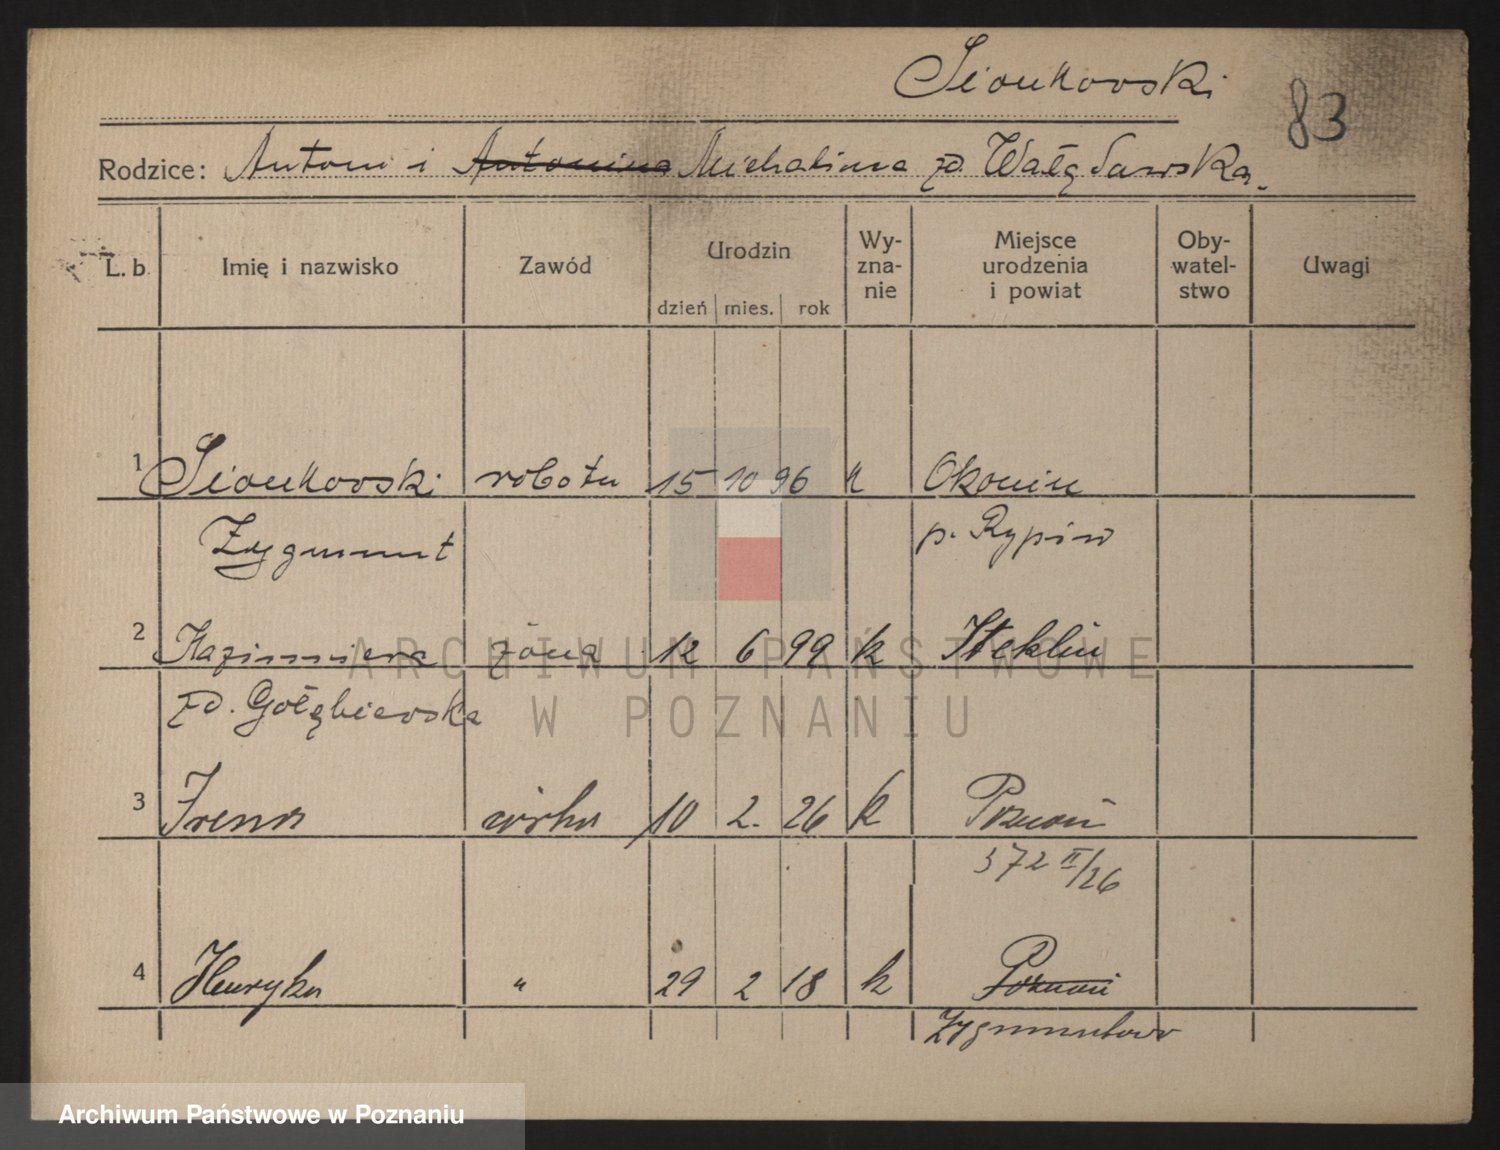 Sionkowski
83
Rodzice: Antoni i Antonina Michalina zd. Wałęsawska.
L. b. Imię i nazwisko Zawód Urodzin dzień mies. rok Wy-zna-nie Miejsce urodzenia i powiat Oby-watel-stwo Uwagi
1 Sionkowski robotn 15 10 96 k Okonin
Zygmunt p. Rypin
2 Kazimiera żona 12 6 99 k Steklin
zd. Gołębiewska
3 Irena córka 10 2. 26 k Poznań
372 II/26
4 Henryka " 29 2 18 k Poznań
Zygmuntowo
ARCHIWUM PAŃSTWOWE
W POZNANIU
Archiwum Państwowe w Poznaniu